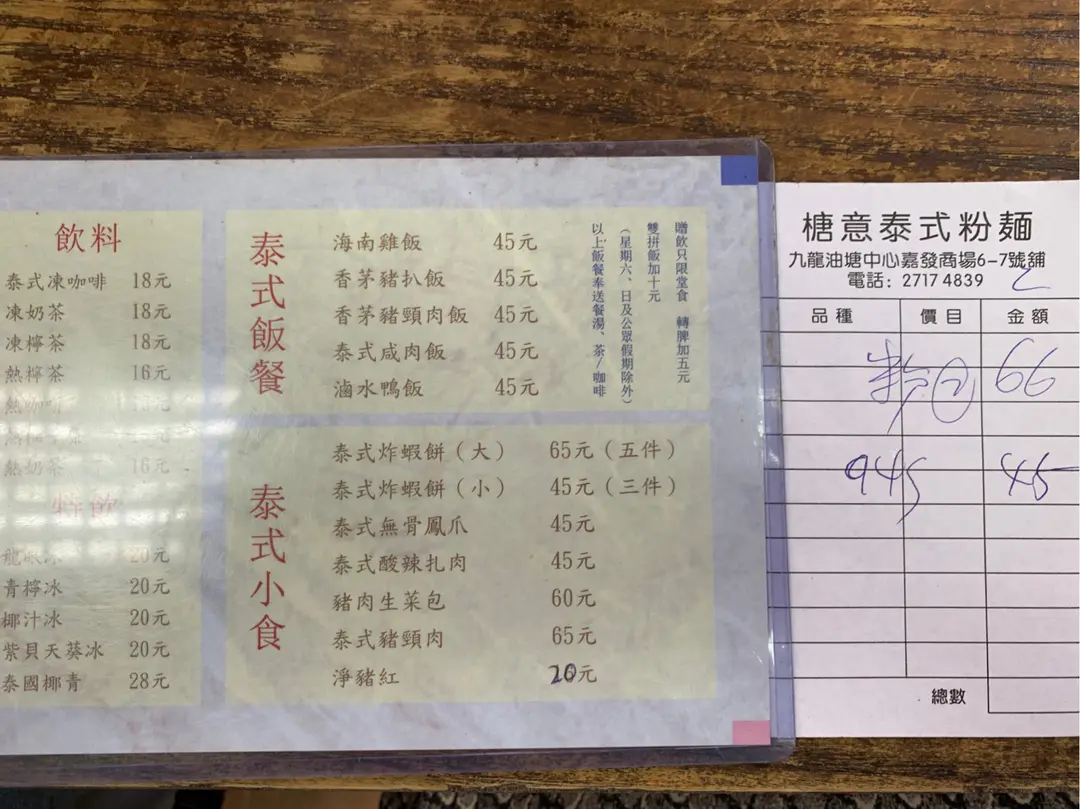 飲料
泰式凍咖啡 18元
凍奶茶 18元
凍檸茶 18元
熱檸茶 16元
熱咖啡
熱奶茶 16元
特飲
龍眼冰 20元
青檸冰 20元
椰汁冰 20元
紫貝天葵冰 20元
泰國椰青 28元
泰式飯餐
海南雞飯 45元
香茅豬扒飯 45元
香茅豬頸肉飯 45元
泰式咸肉飯 45元
滷水鴨飯 45元
贈飲只限堂食 轉脾加五元
雙拼飯加十元
(星期六、日及公眾假期除外)
以上飯餐奉送餐湯、茶/咖啡
泰式小食
泰式炸蝦餅(大) 65元(五件)
泰式炸蝦餅(小) 45元(三件)
泰式無骨鳳爪 45元
泰式酸辣扎肉 45元
豬肉生菜包 60元
泰式豬頸肉 65元
淨豬紅 20元
榶意泰式粉麵
九龍油塘中心嘉發商場6-7號舖
電話: 2717 4839
品種 價目 金額
66
945 45
總數